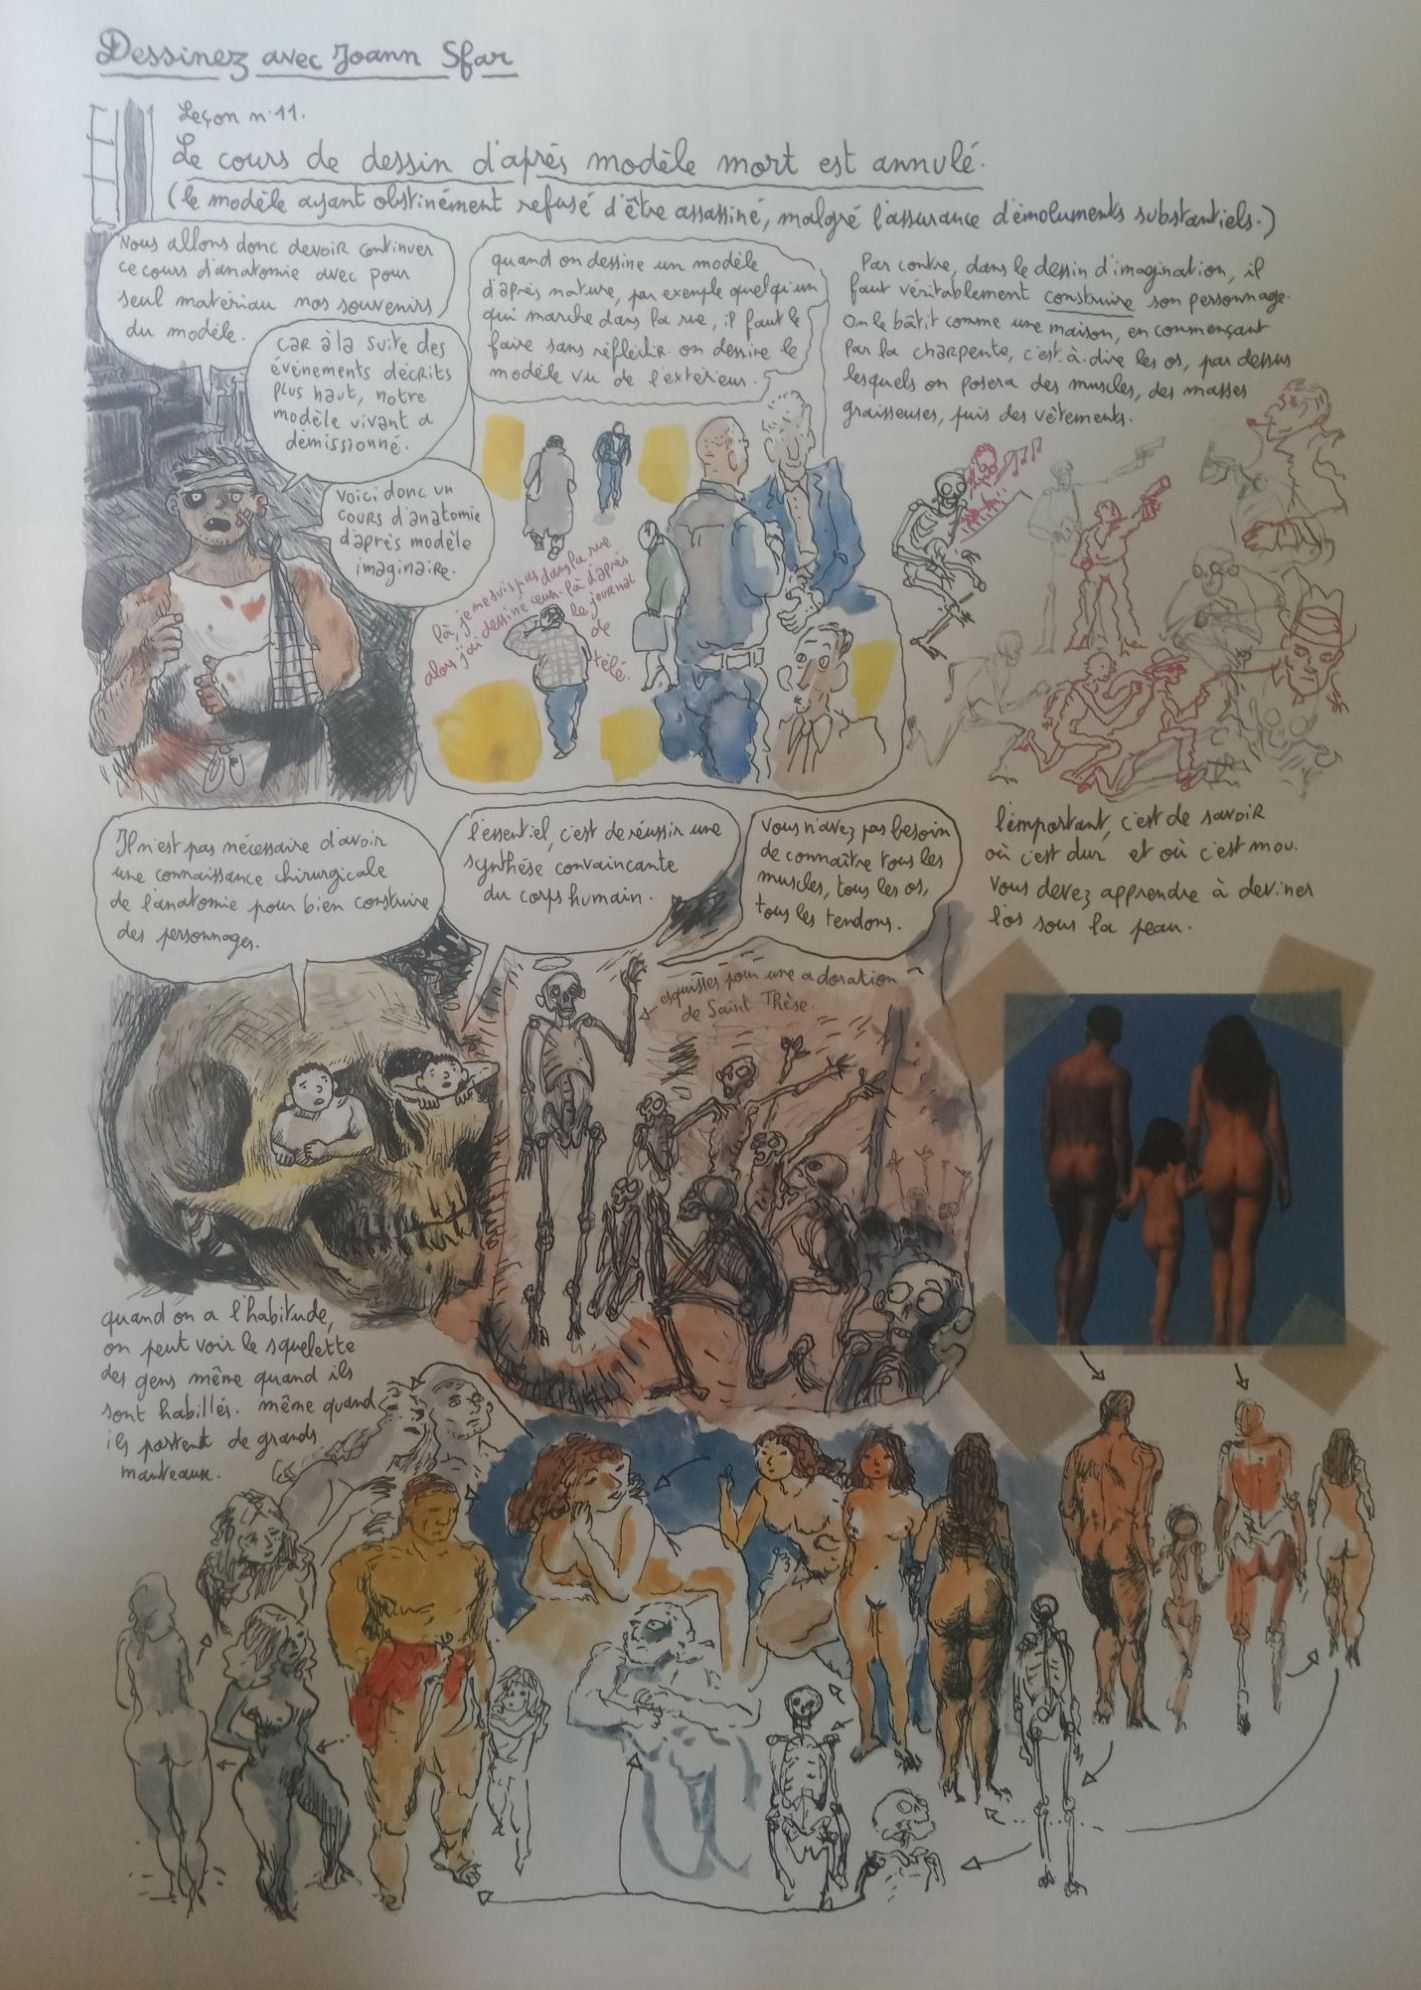 Dessinez avec Joann Sfar
Leçon n°11.
Le cours de dessin d'après modèle mort est annulé.
(le modèle ayant obstinément refusé d'être assassiné, malgré l'assurance d'émoluments substantiels.)
Nous allons donc devoir continuer
ce cours d'anatomie avec pour
seul matériau nos souvenirs
du modèle.
car à la suite des
événements décrits
plus haut, notre
modèle vivant a
démissionné.
Voici donc un
cours d'anatomie
d'après modèle
imaginaire.
quand on dessine un modèle
d'après nature, par exemple quelqu'un
qui marche dans la rue, il faut le
faire sans réfléchir. on dessine le
modèle vu de l'extérieur.
là, je ne suis pas dans la rue
alors j'ai dessiné ceux-là d'après
le journal
de
télé.
Par contre, dans le dessin d'imagination, il
faut véritablement construire son personnage.
On le bâtit comme une maison, en commençant
par la charpente, c'est-à-dire les os, par dessus
lesquels on posera des muscles, des masses
graisseuses, puis des vêtements.
Il n'est pas nécessaire d'avoir
une connaissance chirurgicale
de l'anatomie pour bien construire
des personnages.
l'essentiel, c'est de réussir une
synthèse convaincante
du corps humain.
Vous n'avez pas besoin
de connaître tous les
muscles, tous les os,
tous les tendons.
l'important, c'est de savoir
où c'est dur et où c'est mou.
Vous devez apprendre à deviner
l'os sous la peau.
esquisses pour une adoration
de Saint Thèse.
quand on a l'habitude,
on peut voir le squelette
des gens même quand ils
sont habillés. même quand
ils portent de grands
manteaux.